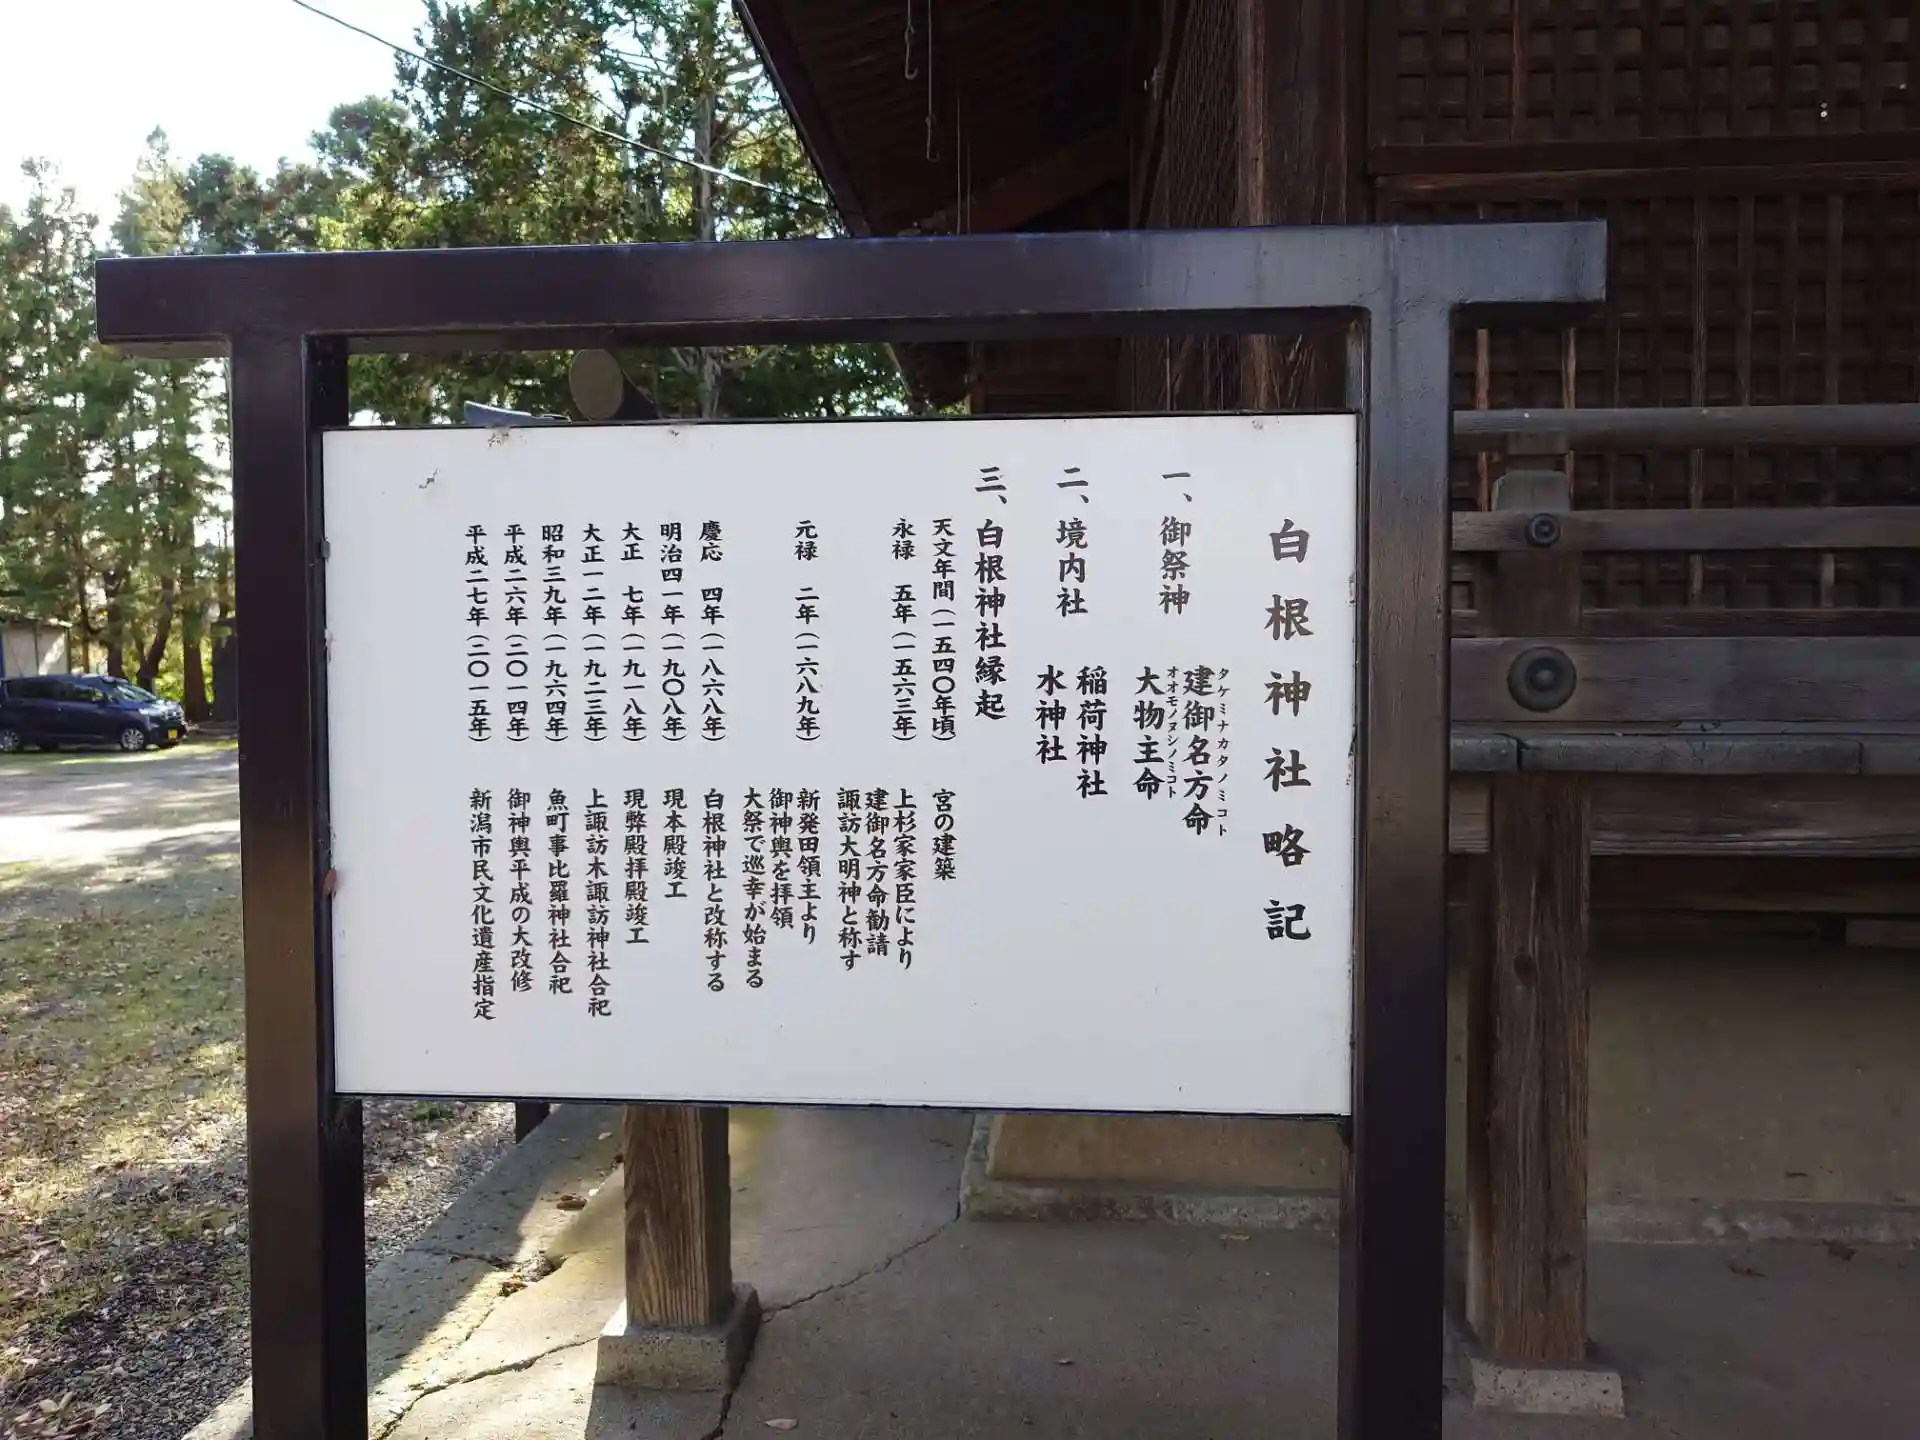 白根神社略記
一、御祭神
タケミナカタノミコト
建御名方命
オオモノヌシノミコト
大物主命
二、境内社
稲荷神社
水神社
三、白根神社縁起
天文年間(一五四〇年頃) 宮の建築
永禄 五年(一五六三年) 上杉家家臣により
建御名方命勧請
諏訪大明神と称す
元禄 二年(一六八九年) 新発田領主より
御神輿を拝領
大祭で巡幸が始まる
慶応 四年(一八六八年) 白根神社と改称する
明治四一年(一九〇八年) 現本殿竣工
大正 七年(一九一八年) 現弊殿拝殿竣工
大正一二年(一九二三年) 上諏訪木諏訪神社合祀
昭和三九年(一九六四年) 魚町事比羅神社合祀
平成二六年(二〇一四年) 御神輿平成の大改修
平成二七年(二〇一五年) 新潟市民文化遺産指定